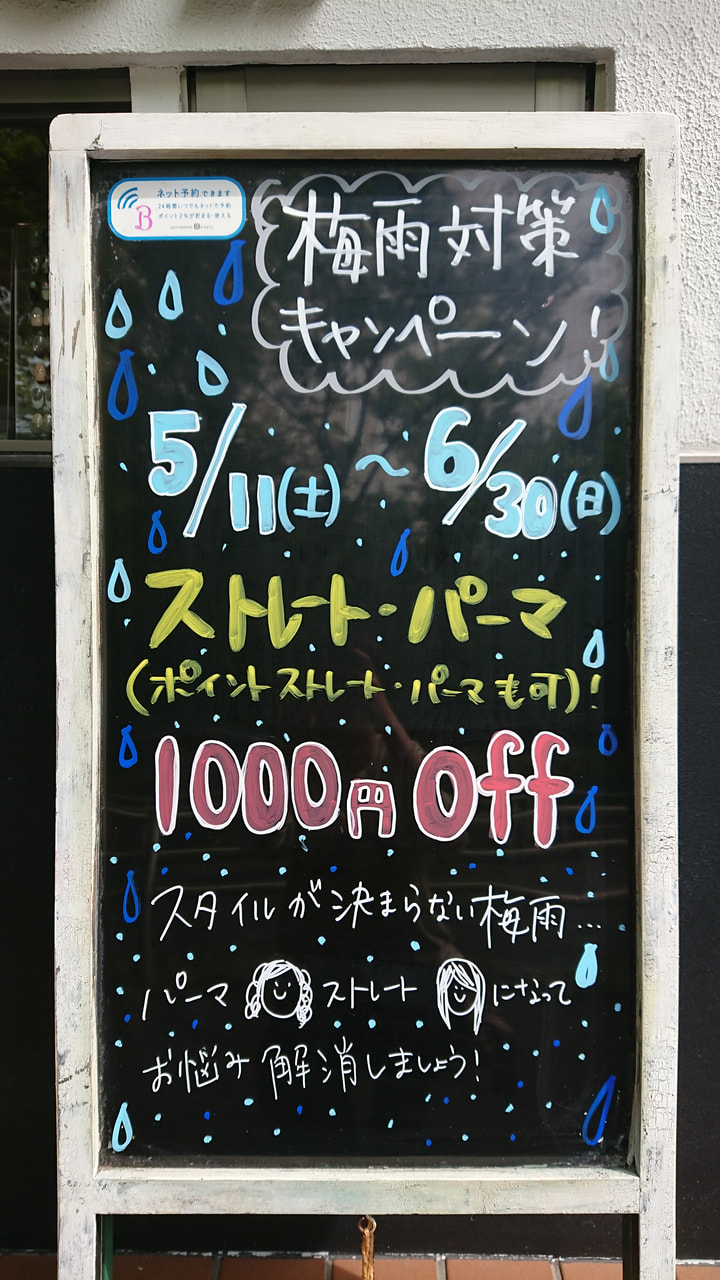 ネット予約できます
24時間いつでもネットで予約
ポイント2%が貯まる・使える
HOT PEPPER Beauty
B
梅雨対策
キャンペーン!
5/11(土)～6/30(日)
ストレート・パーマ
(ポイントストレート・パーマも可)!
1000円off
スタイルが決まらない梅雨...
パーマ ストレート になって
お悩み解消しましょう!